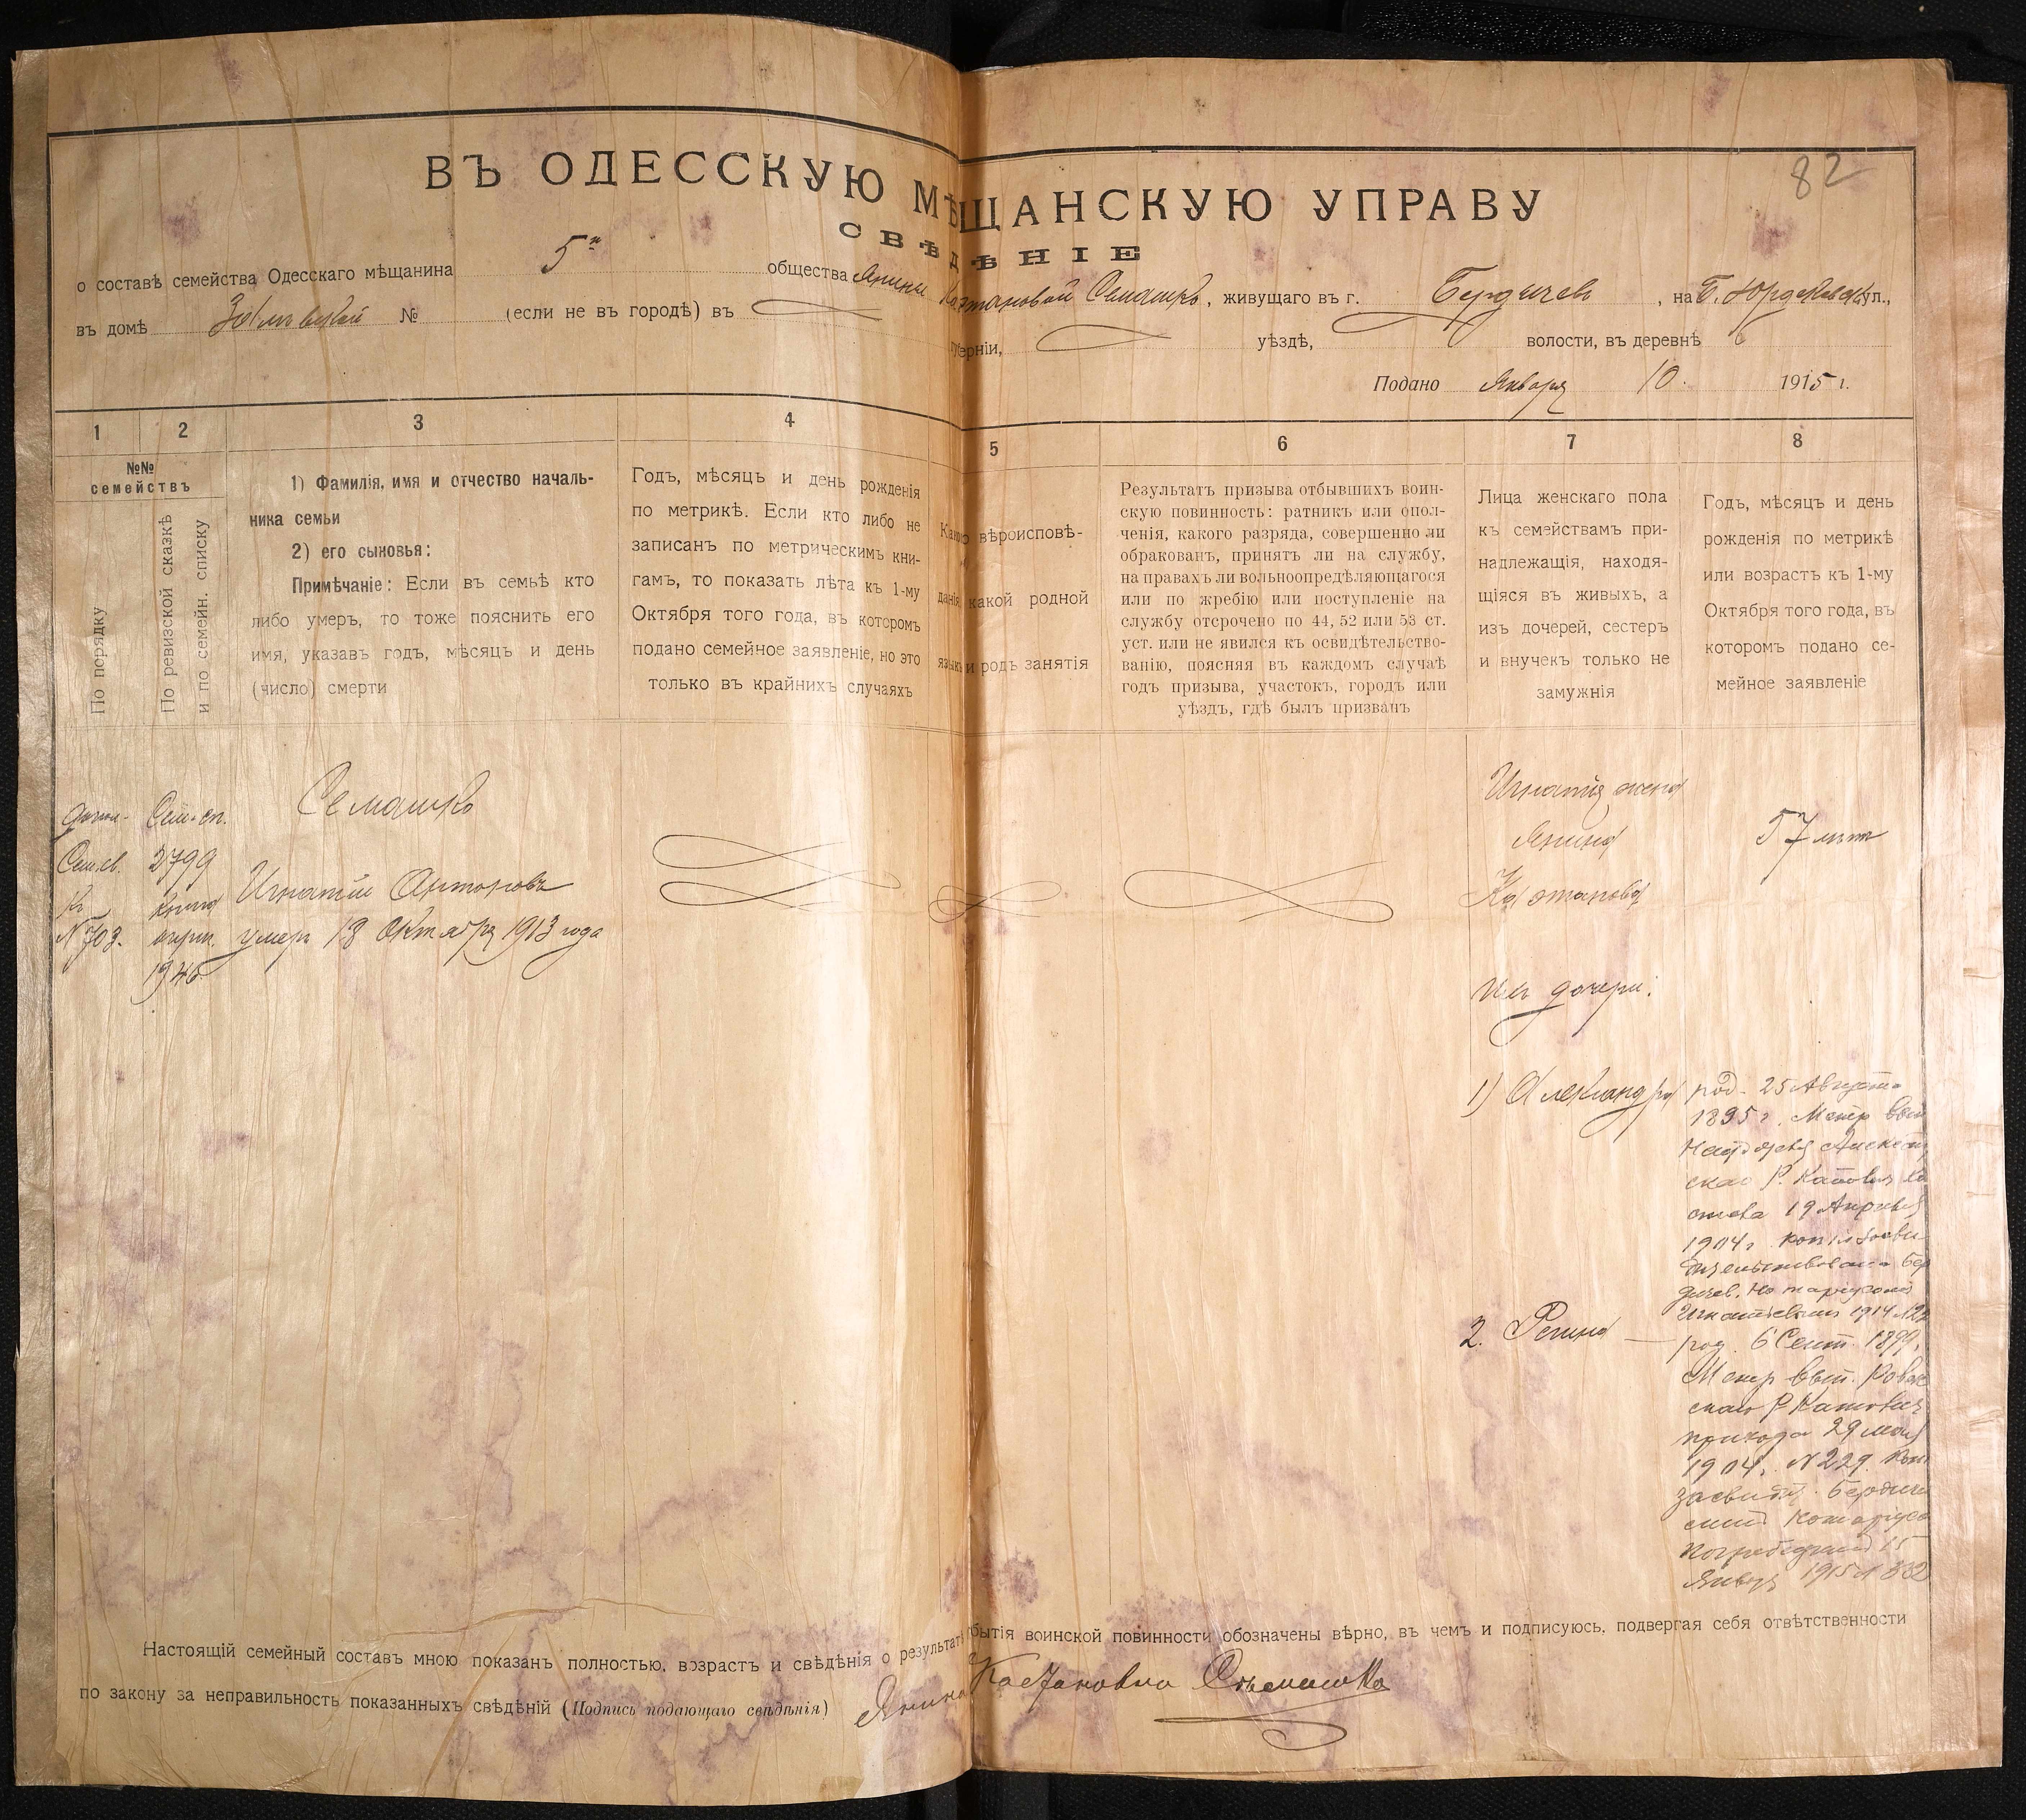 82
ВЪ ОДЕССКУЮ МѢЩАНСКУЮ УПРАВУ
СВѢДѢНІЕ
о составѣ семейства Одесскаго мѣщанина 5н общества Янины Каэтановой Семашко, живущаго въ г. Бердичевъ, на Б. ул.,
въ домѣ № (если не въ городѣ) въ губерніи, уѣздѣ, волости, въ деревнѣ
Подано Января 10. 1915 г.
1
2
3
4
5
6
7
8
№№
семействъ
По порядку
По ревизской сказкѣ
и по семейн. списку
1) Фамилія, имя и отчество началь-
ника семьи
2) его сыновья:
Примѣчаніе: Если въ семьѣ кто
либо умеръ, то тоже пояснить его
имя, указавъ годъ, мѣсяцъ и день
(число) смерти
Годъ, мѣсяцъ и день рожденія
по метрикѣ. Если кто либо не
записанъ по метрическимъ кни-
гамъ, то показать лѣта къ 1-му
Октября того года, въ которомъ
подано семейное заявленіе, но это
только въ крайнихъ случаяхъ
Какого вѣроисповѣ-
данія, какой родной
языкъ и родъ занятія
Результатъ призыва отбывшихъ воин-
скую повинность: ратникъ или опол-
ченія, какого разряда, совершенно ли
обракованъ, принятъ ли на службу,
на правахъ ли вольноопредѣляющагося
или по жребію или поступленіе на
службу отсрочено по 44, 52 или 53 ст.
уст. или не явился къ освидѣтельство-
ванію, поясняя въ каждомъ случаѣ
годъ призыва, участокъ, городъ или
уѣздъ, гдѣ былъ призванъ
Лица женскаго пола
къ семействамъ при-
надлежащія, находя-
щіяся въ живыхъ, а
изъ дочерей, сестеръ
и внучекъ только не
замужнія
Годъ, мѣсяцъ и день
рожденія по метрикѣ
или возрастъ къ 1-му
Октября того года, въ
которомъ подано се-
мейное заявленіе
N 703.
Сем. сп.
2799
Семашко
Игнатій Антоновъ
умеръ 18 Октября 1913 года
Игнатія жена
Янина
Каэтанова
57 лѣтъ
Ихъ дочери:
1) Александра
род. 25 Августа
1895 г. Метр
ская Р. Катол
19 Апрѣля
1904 г.
1914
2. Регина
род. 6 Сент. 1899.
Метр вып.
скаго Р Катол
прихода 29 мая
1904 г. N 229.
15
Января 1915
Настоящій семейный составъ мною показанъ полностью, возрастъ и свѣдѣнія о результатѣ отбытія воинской повинности обозначены вѣрно, въ чемъ и подписуюсь, подвергая себя отвѣтственности
по закону за неправильность показанныхъ свѣдѣній (Подпись подающаго свѣдѣнія) Янина Каэтановна Сѣмашко